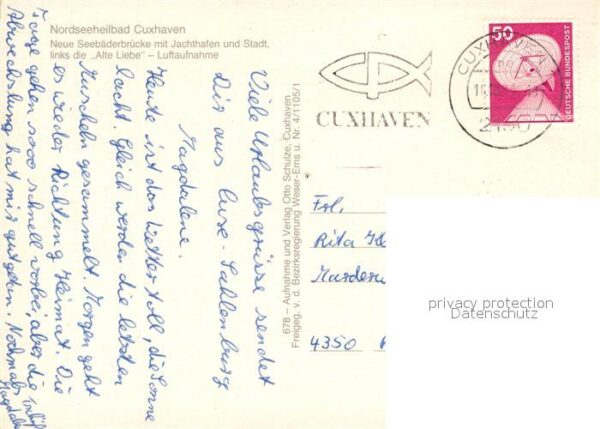 Nordseeheilbad Cuxhaven
Neue Seebäderbrücke mit Jachthafen und Stadt,
links die „Alte Liebe" – Luftaufnahme
Viele Urlaubsgrüsse sendet
Dir aus Cux-Sahlenburg
Magdalene.
Heute ist das Wetter toll, die Sonne
lacht. Gleich werden die letzten
Muscheln gesammelt. Morgen geht
es wieder Richtung Heimat. Die
Tage gehen sooo schnell vorbei, aber die
Abwechslung hat mir gutgetan. Nochmals
Magdalene
678 – Aufnahme und Verlag Otto Schulze, Cuxhaven
Freigeg. v. d. Bezirksregierung Weser-Ems u. Nr. 4/1105/1
CUXHAVEN
CUXHAVEN
2190
50
DEUTSCHE BUNDESPOST
Frl.
Rita
4350
privacy protection
Datenschutz